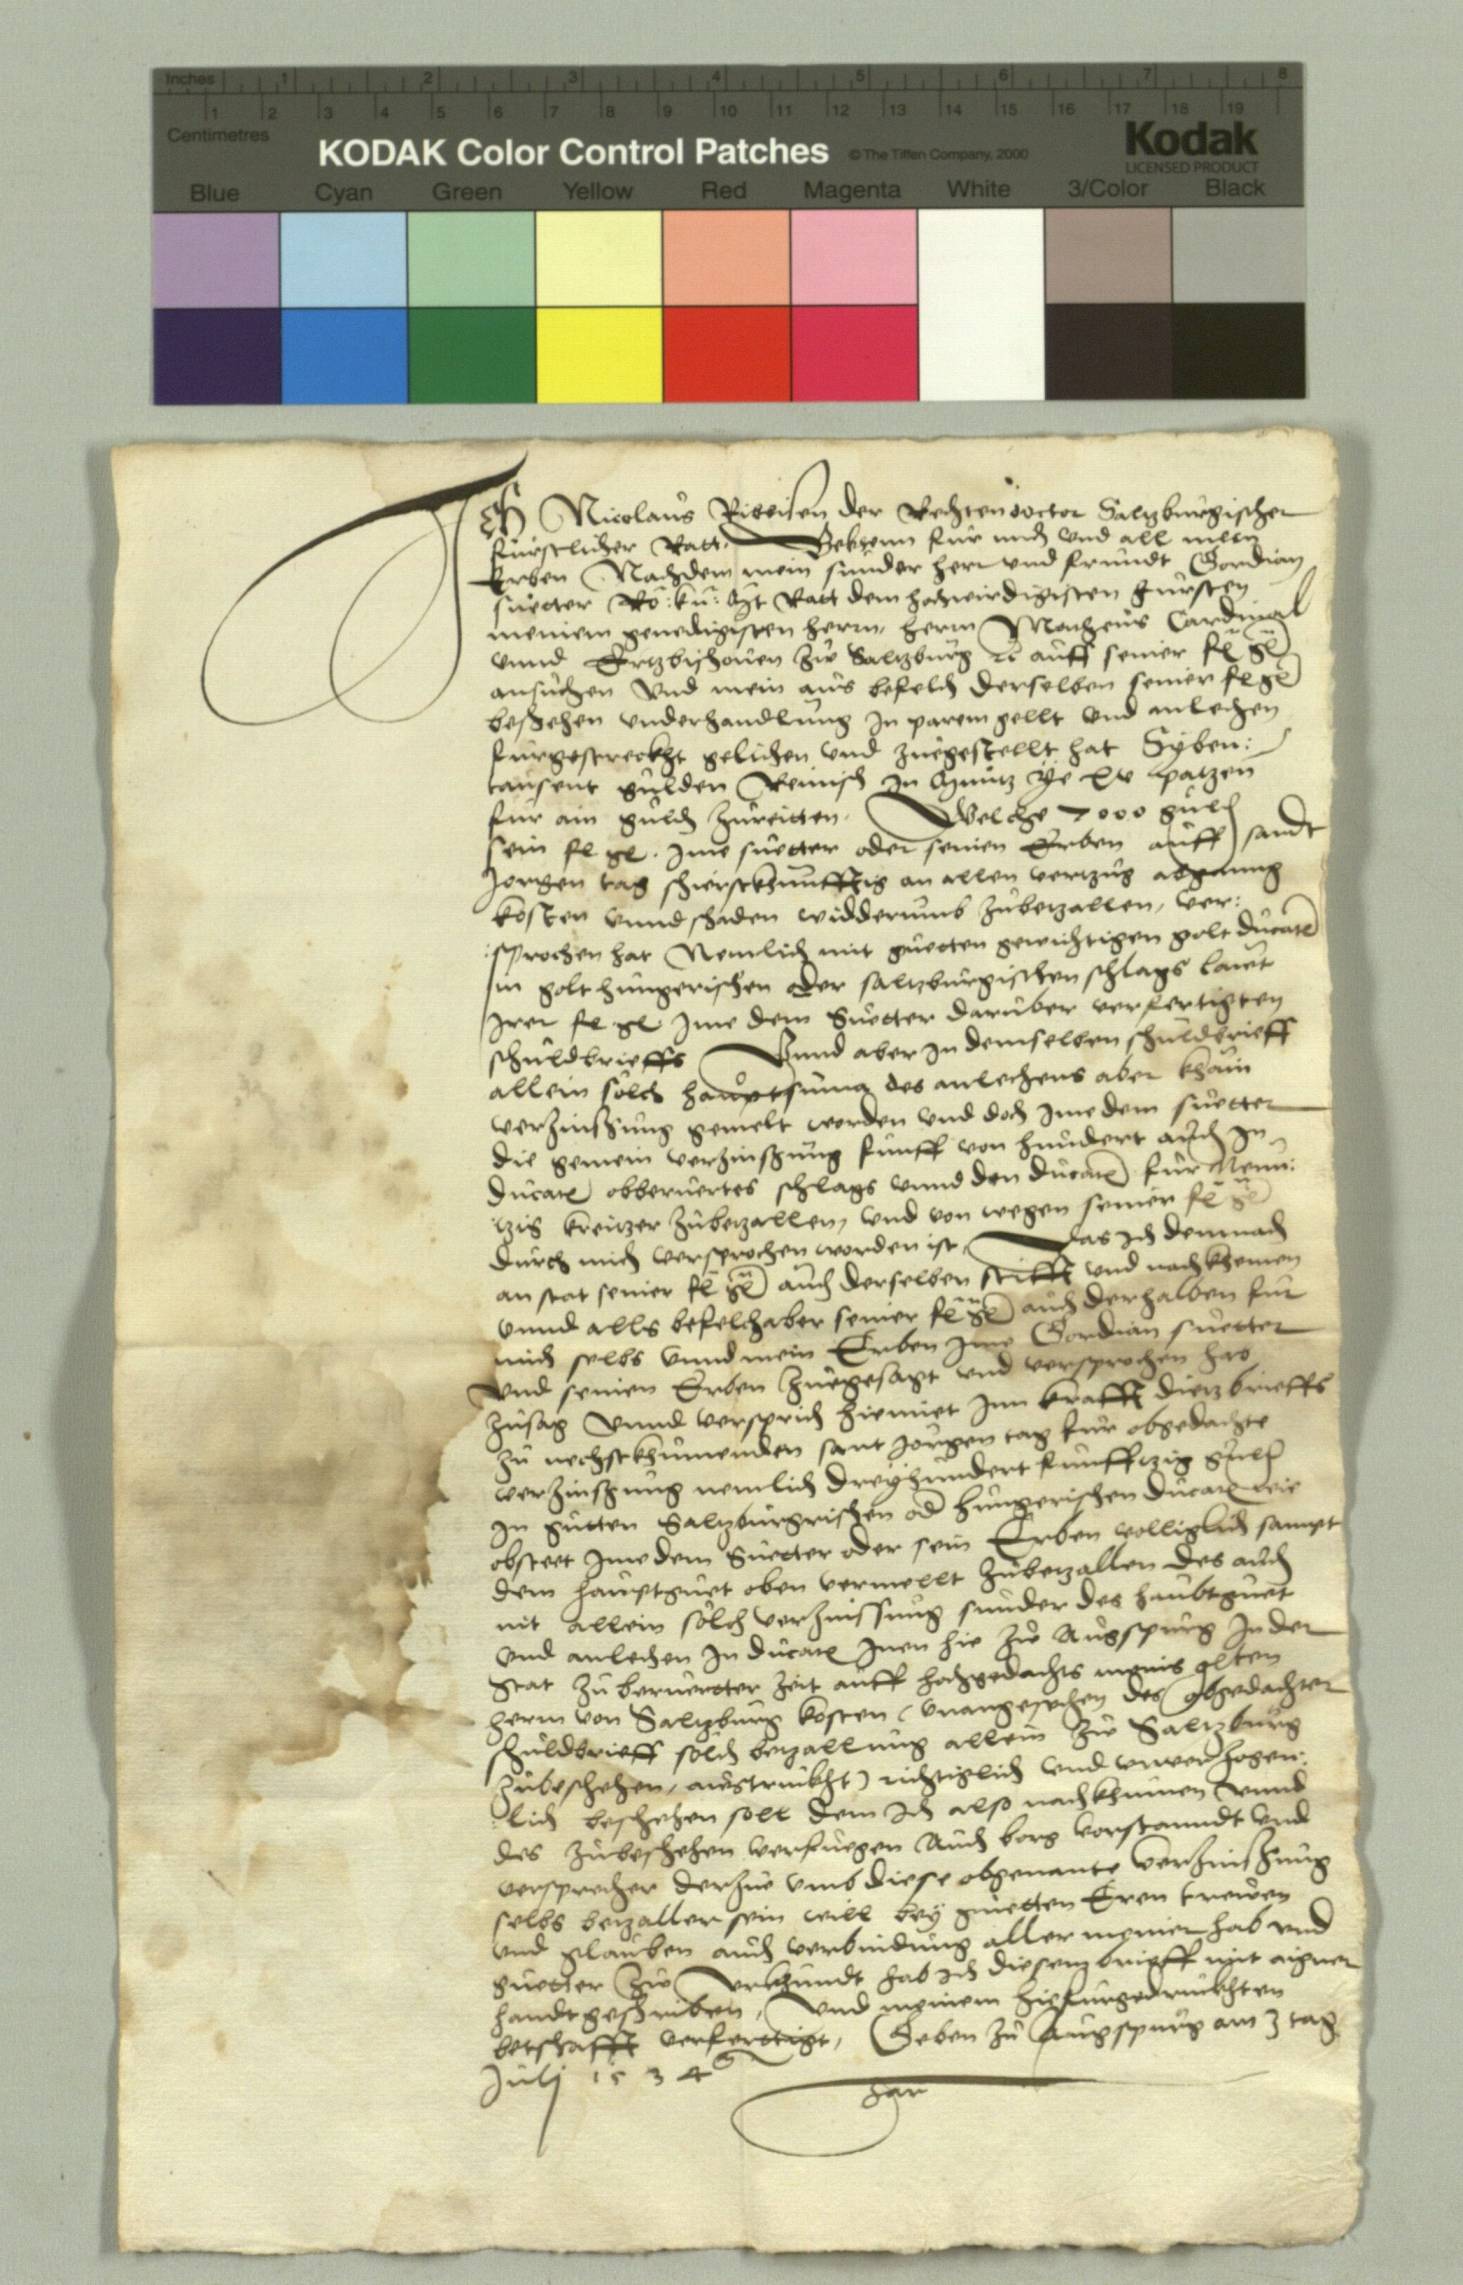 Inches 1 2 3 4 5 6 7 8
1 2 3 4 5 6 7 8 9 10 11 12 13 14 15 16 17 18 19
Centimetres
KODAK Color Control Patches ©The Tiffen Company, 2000 Kodak
LICENSED PRODUCT
Blue Cyan Green Yellow Red Magenta White 3/Color Black
Ich Nicolaus Ribeisen der Rechten doctor Saltzburgischer
furstlicher Ratt. Bekenn fur mich vnd all mein
Erben Nachdem mein sunder herr vnd frundt Gordian
suetter Rö: kü: Mt Ratt dem hochwirdigisten fursten
meinem genedigisten herrn, herrn Matheus Cardinal
vnnd Ertzbischouen zw Saltzburg rc auff seiner fl gl
ansuchen vnd mein aus befelch derselben seiner fl gl
beschehen vnderhandlung In parem gellt vnd anlechen
furgestreckht gelichen vnd zuegestellt hat Syben:
tausent gulden Reinisch In Muntz ye xv patzen
fur ain guld zureitten. Welche 7000 guld
sein fl gl. Ime suetter oder seinen Erben auff sandt
Jorgen tag schierstkhunfftig an allen vertzug abganng
kosten vnnd schaden widderumb zubetzallen, ver:
:sprochen hat Nemlich mit guetten gewichtigen golt ducat
in golt hungerischen oder saltzburgischen schlags laut
Irer fl gl Ime dem Suetter daruber verfertigten
schuldbrieffs Vnnd aber In demselben schuldbrieff
allein solch hauptsuma des anlechens aber khain
verzinsung gemelt worden vnd doch Ime dem suetter
die gemein verzinsung funff von hundert auch In
ducat obberuertes schlags vnnd den ducat fur Neun:
tzig kreitzer zubetzallen, vnd von wegen seiner fl gl
durch mich versprochen worden ist, Das ich demnach
an stat seiner fl gl auch derselben stifft vnd nachkhomen
vnnd alls befelchaber seiner fl gl auch derhalben fur
mich selbs vnnd mein Erben Ime Gordian suetter
vnd seinen Erben zuegesagt vnd versprochen hab
zusag vnnd versprich hiemit Inn krafft ditz brieffs
zu nechstkhumenden sant Jorgen tag fur obgedachte
verzinsung nemlich dreyhundert funfftzig guld
In gutten Saltzburgrischen od hungerischen ducat wie
obsteet Ime dem Suetter oder sein Erben volliglich sampt
dem hauptguet oben vermellt zubetzallen des auch
nit allein solch verzinssung sunder des haubtguet
vnd anlechen In ducat Inen hie zw Augspurg In der
Stat zu beruertter zeit auff hochgedachts meins
herrn von Saltzburg kosten (vnangesehen des obgedachter
schuldbrieff solch betzallung allein zw Saltzburg
zubeschehen, austruckht) richtiglich vnd vnuerzogen:
:lich beschehen soll dem Ich also nachkhumen vnnd
des zubeschehen verfuegen Auch borg vorstanndt vnd
versprecher derzue vmb diese obgenante verzinsung
selbs betzaller sein will bey guetten Eren trewen
vnd glauben auch verbindung aller meiner hab vnd
guetter zw Vrkhundt hab Ich diesem brieff mit aigner
handt geschriben, vnd meinem hiefurgedruckhten
betschafft verfertigt, Geben zu Augspurg am 3 tag
Julj 1534
Jar